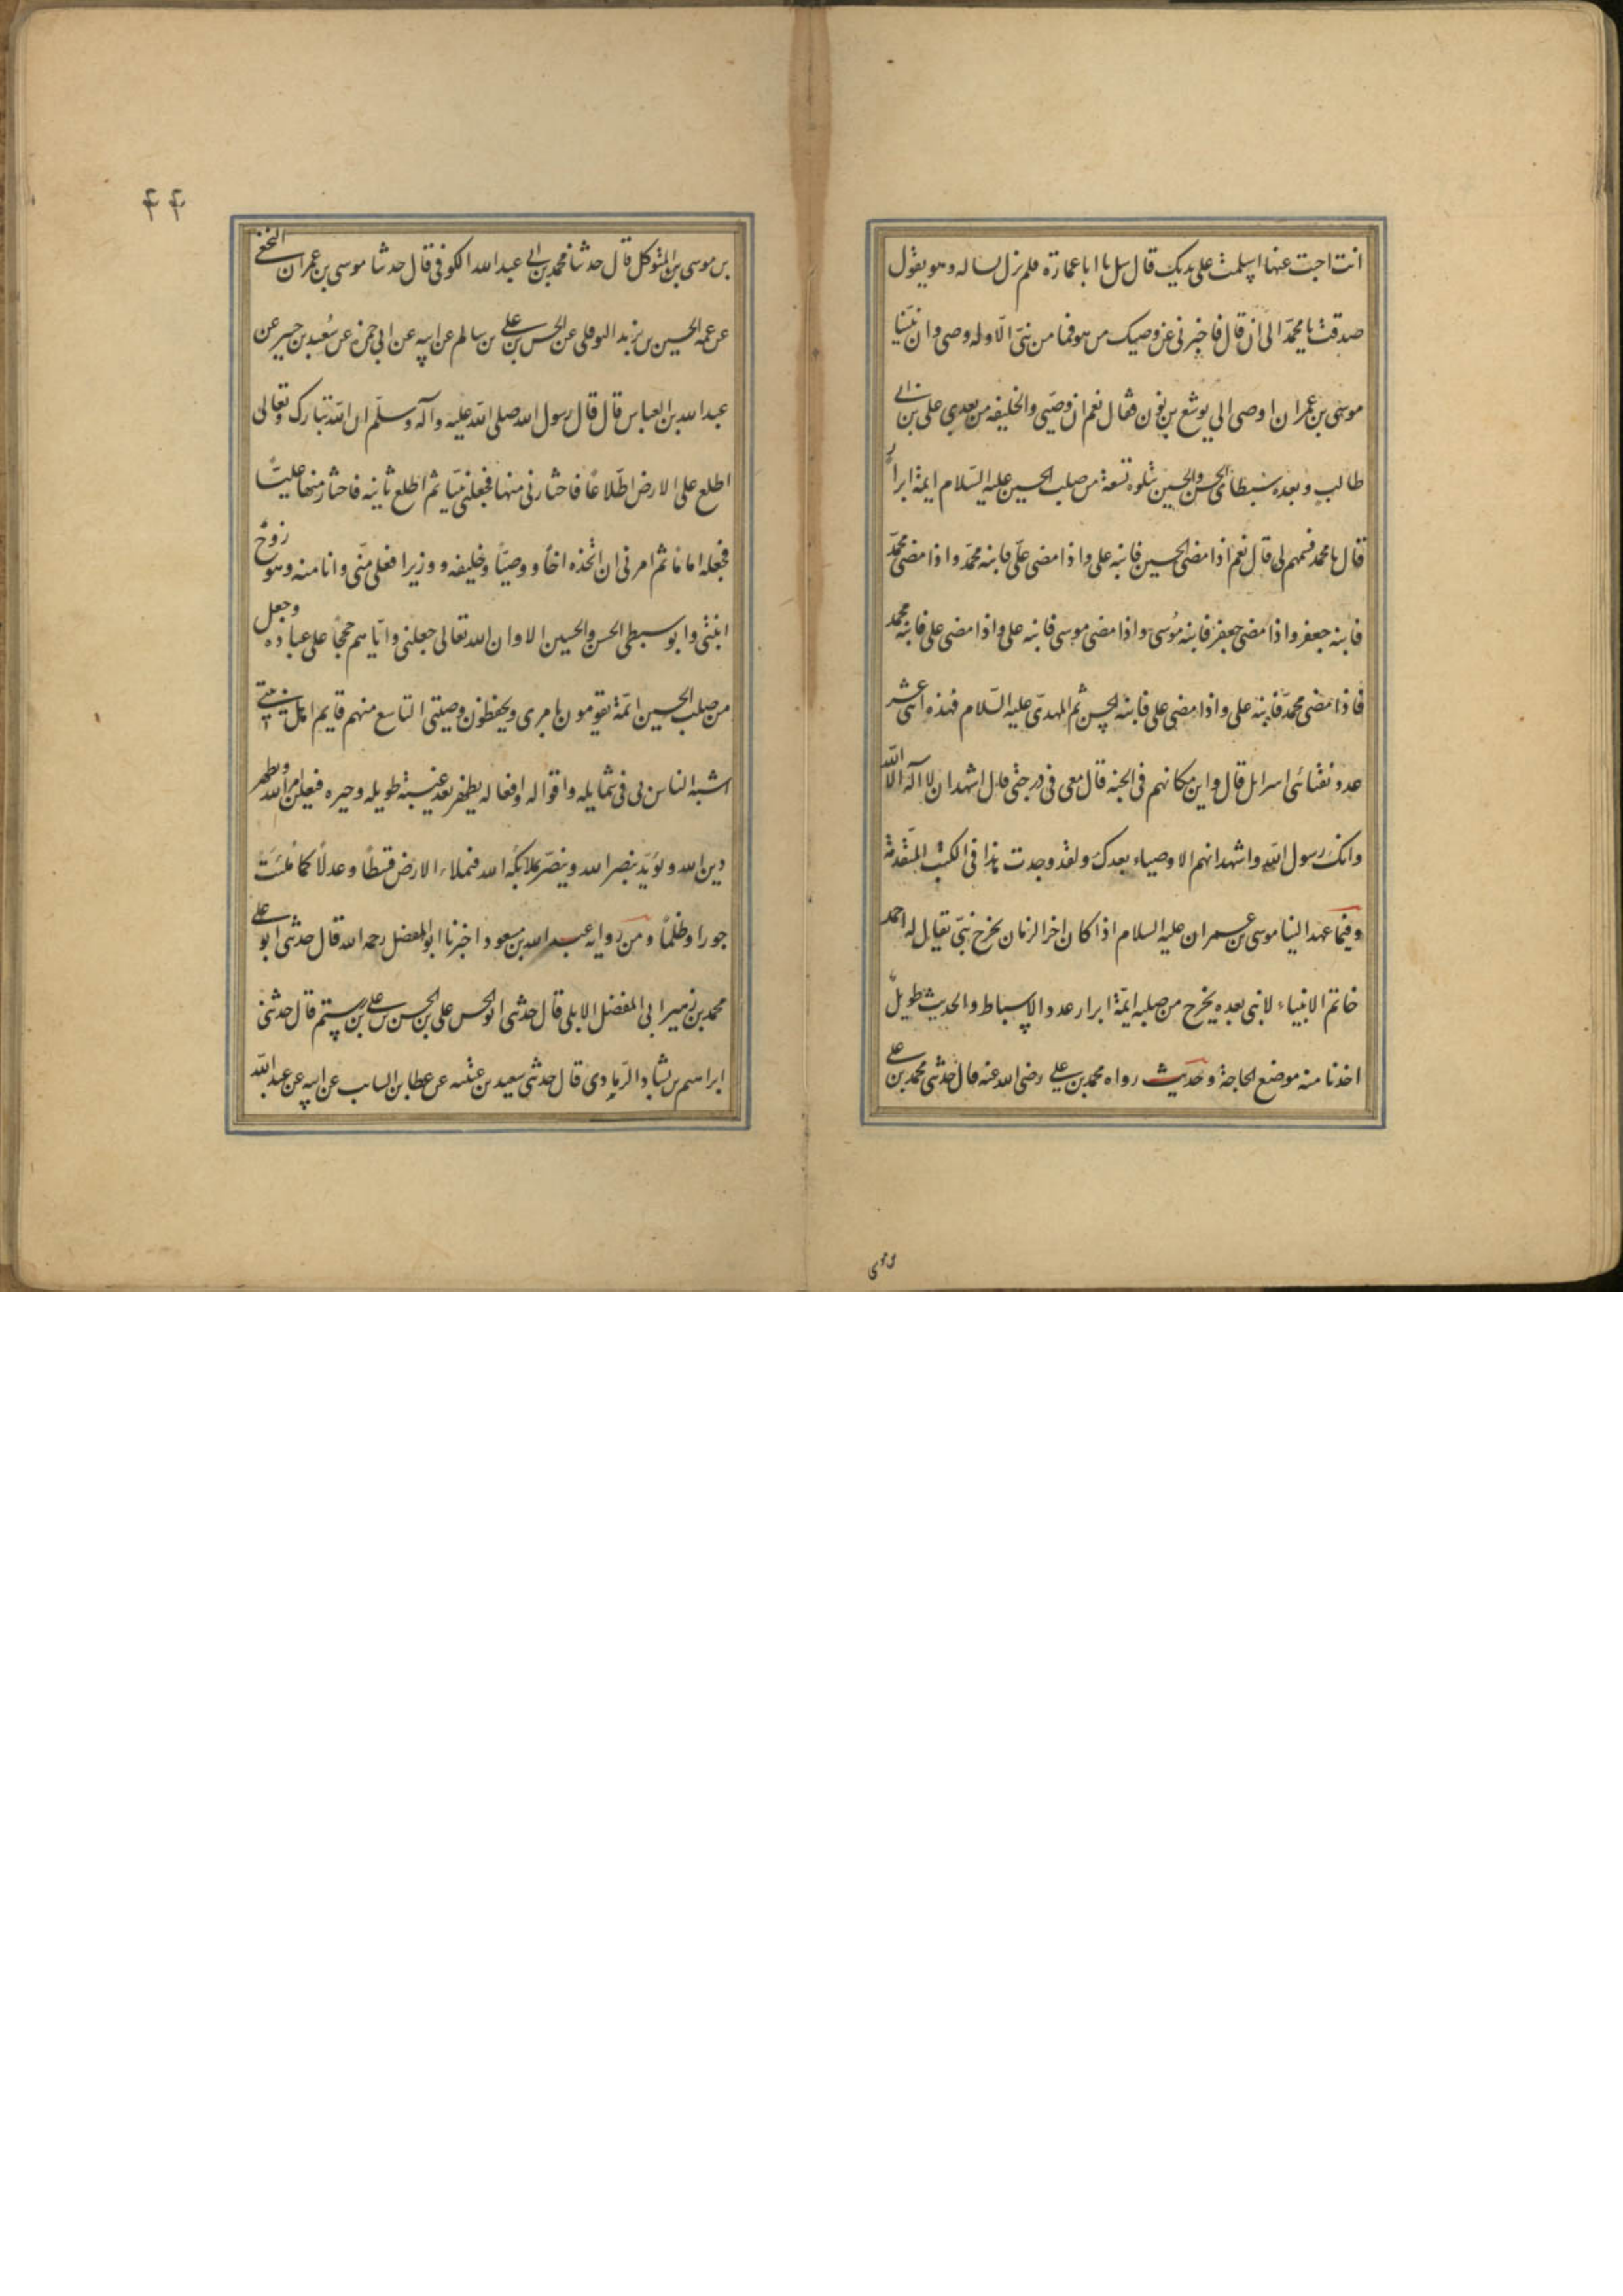 انت اجبت عنها اسلمت على يديك قال سل يا ابا عمارة فلم يزل يساله وهو يقول
صدقت يا محمد الى ان قال فاخبرني عن وصيك من هو فما من نبي الا وله وصي وان نبينا
موسى بن عمران اوصى الى يوشع بن نون فقال نعم ان وصيي والخليفه من بعدي علي بن ابي
طالب وبعده سبطاي الحسن والحسين تتلوه تسعة من صلب الحسين عليه السلام ايمة ابرار
قال يا محمد فسمهم لي قال نعم اذا مضى الحسين فابنه علي واذا مضى علي فابنه محمد واذا مضى محمد
فابنه جعفر واذا مضى جعفر فابنه موسى واذا مضى موسى فابنه علي واذا مضى علي فابنه محمد
فاذا مضى محمد فابنه علي واذا مضى علي فابنه الحسن ثم المهدي عليه السلام فهذه اثنى عشر
عدد نقبائى اسرايل قال واين مكانهم في الجنه قال معى في درجتي قال اشهد ان لا اله الا الله
وانك رسول الله واشهد انهم الاوصياء بعدك ولقد وجدت هذا في الكتب المتقدمة
وفيما عهد الينا موسى بن عمران عليه السلام اذا كان اخر الزمان يخرج نبي يقال له احمد
خاتم الانبياء لا نبي بعده يخرج من صلبه ايمة ابرار عدد الاسباط والحديث طويل
اخذنا منه موضع الحاجة وحديث رواه محمد بن علي رضي الله عنه قال حدثني محمد بن علي
بن موسى بن المتوكل قال حدثنا محمد بن ابي عبد الله الكوفي قال حدثنا موسى بن عمران النخعي
عن عمه الحسين بن يزيد النوفلي عن الحسن بن علي بن سالم عن ابيه عن ابي حمزه عن سعيد بن جبير عن
عبد الله بن العباس قال قال رسول الله صلى الله عليه وآله وسلم ان الله تبارك وتعالى
اطلع على الارض اطلاعًا فاختارني منها فجعلني نبيا ثم اطلع ثانيه فاختار منها عليًا
فجعله اماما ثم امرني ان اتخذه اخًا ووصيًا وخليفه ووزيرا فعلي مني وانا منه وهو زوج
ابنتي وابو سبطي الحسن والحسين الا وان الله تعالى جعلني واياهم حججًا على عباده وجعل
من صلب الحسين ائمة يقومون بامري ويحفظون وصيتي التاسع منهم قايم اهل بيتي
اشبه الناس بي في شمايله واقواله وافعاله يظهر بعد غيبة طويله وحيره فيعلن امر الله ويظهر
دين الله ويؤيد بنصر الله وينصر بملائكه الله فيملاء الارض قسطًا وعدلًا كما ملئت
جورا وظلمًا ومن رواية عبد الله بن مسعود اخبرنا ابو المفضل رحمه الله قال حدثني ابو علي
محمد بن زهير ابي المفضل الابلي قال حدثني ابو الحسن علي بن الحسن بن علي بن رستم قال حدثني
ابراهيم بن بشاد الرمادي قال حدثني سعيد بن عتبه عن عطا بن السايب عن ابيه عن عبد الله